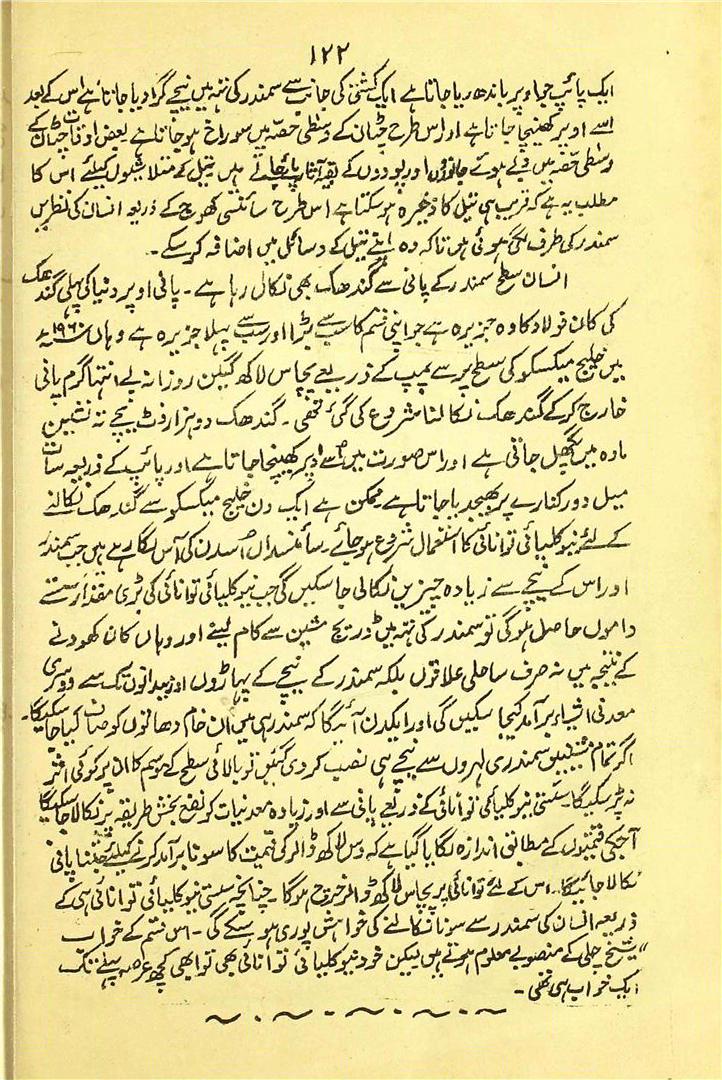 ۱۲۲
ایک پائپ جو اوپر باندھ دیا جاتا ہے ایک کشتی کی جانب سے سمندر کی تہہ میں نیچے گرا دیا جاتا ہے اس کے بعد
اسے اوپر کھینچا جاتا ہے اور اس طرح چٹان کے وسطی حصّہ میں سوراخ ہو جاتا ہے بعض اوقات چٹان کے
وسطی حصّہ میں دبے ہوئے جانوروں اور پودوں کے بقیہ آثار پائے جاتے ہیں تیل کے متلاشیوں کیلئے اس کا
مطلب یہ ہے کہ قریب ہی تیل کا ذخیرہ ہو سکتا ہے اس طرح سائنسی کھوج کے ذریعہ انسان کی نظریں
سمندر کی طرف لگی ہوئی ہیں تاکہ وہ اپنے تیل کے وسائل میں اضافہ کر سکے۔
انسان سطح سمندر کے پانی سے گندھک بھی نکال رہا ہے۔ پانی اوپر دنیا کی پہلی گندھک
کی کان فولاد کا وہ جزیرہ ہے جو اپنی قسم کا سب سے بڑا اور سب سے پہلا جزیرہ ہے وہاں ۱۹۶۰ء
میں خلیج میکسکو کی سطح پر سے پمپ کے ذریعے پچاس لاکھ گیلن روزانہ بے انتہا گرم پانی
خارج کرکے گندھک نکالنا شروع کی گئی تھی۔ گندھک دو ہزار فٹ نیچے تہ نشین
مادہ میں پگھل جاتی ہے اور اس صورت میں اسے اوپر کھینچا جاتا ہے اور پائپ کے ذریعہ سات
میل دور کنارے پر بھیجد یا جاتا ہے ممکن ہے ایک دن خلیج میکسکو سے گندھک نکالنے
کے لئے نیو کلیائی توانائی کا استعمال شروع ہو جائے۔ سائنسداں اُسدن کی آس لگا رہے ہیں جب سمندر
اور اس کے نیچے سے زیادہ چیزیں نکالی جا سکیں گی جب نیو کلیائی توانائی کی بڑی مقدار سستے
داموں حاصل ہوگی تو سمندر کی تہہ میں مشین سے کام لینے اور وہاں کان کھودنے
کے نتیجہ میں نہ صرف ساحلی علاقوں بلکہ سمندر کے نیچے کے پہاڑوں اور میدانوں تک سے دوسری
معدنی اشیاء برآمد کیجا سکیں گی اور ایکدن آئیگا کہ سمندر ہی میں ان خام دھاتوں کو صاف کیا جا سکیگا۔
اگر تمام مشینیں سمندری لہروں سے نیچے ہی نصب کر دی گئیں تو بالائی سطح کے موسم کا ان پر کوئی اثر
نہ پڑ سکیگا۔ سستی نیو کلیائی توانائی کے ذریعے پانی سے اور زیادہ معدنیات کو نفع بخش طریقہ پر نکالا جا سکیگا
آجکی قیمتوں کے مطابق اندازہ لگایا گیا ہے کہ دس لاکھ ڈالر کی قیمت کا سونا برآمد کرنے کیلئے جتنا پانی
نکالا جائیگا۔ اس کے لئے توانائی پر پچاس لاکھ ڈالر خرچ ہوگا۔ چنانچہ سستی نیو کلیائی توانائی ہی کے
ذریعہ انسان کی سمندر سے سونا نکالنے کی خواہش پوری ہو سکے گی۔ اس قسم کے خواب
"شیخ چلی کے منصوبے معلوم ہوتے ہیں لیکن خود نیو کلیائی توانائی بھی تو ابھی کچھ عرصہ پہلے تک
ایک خواب ہی تھی۔